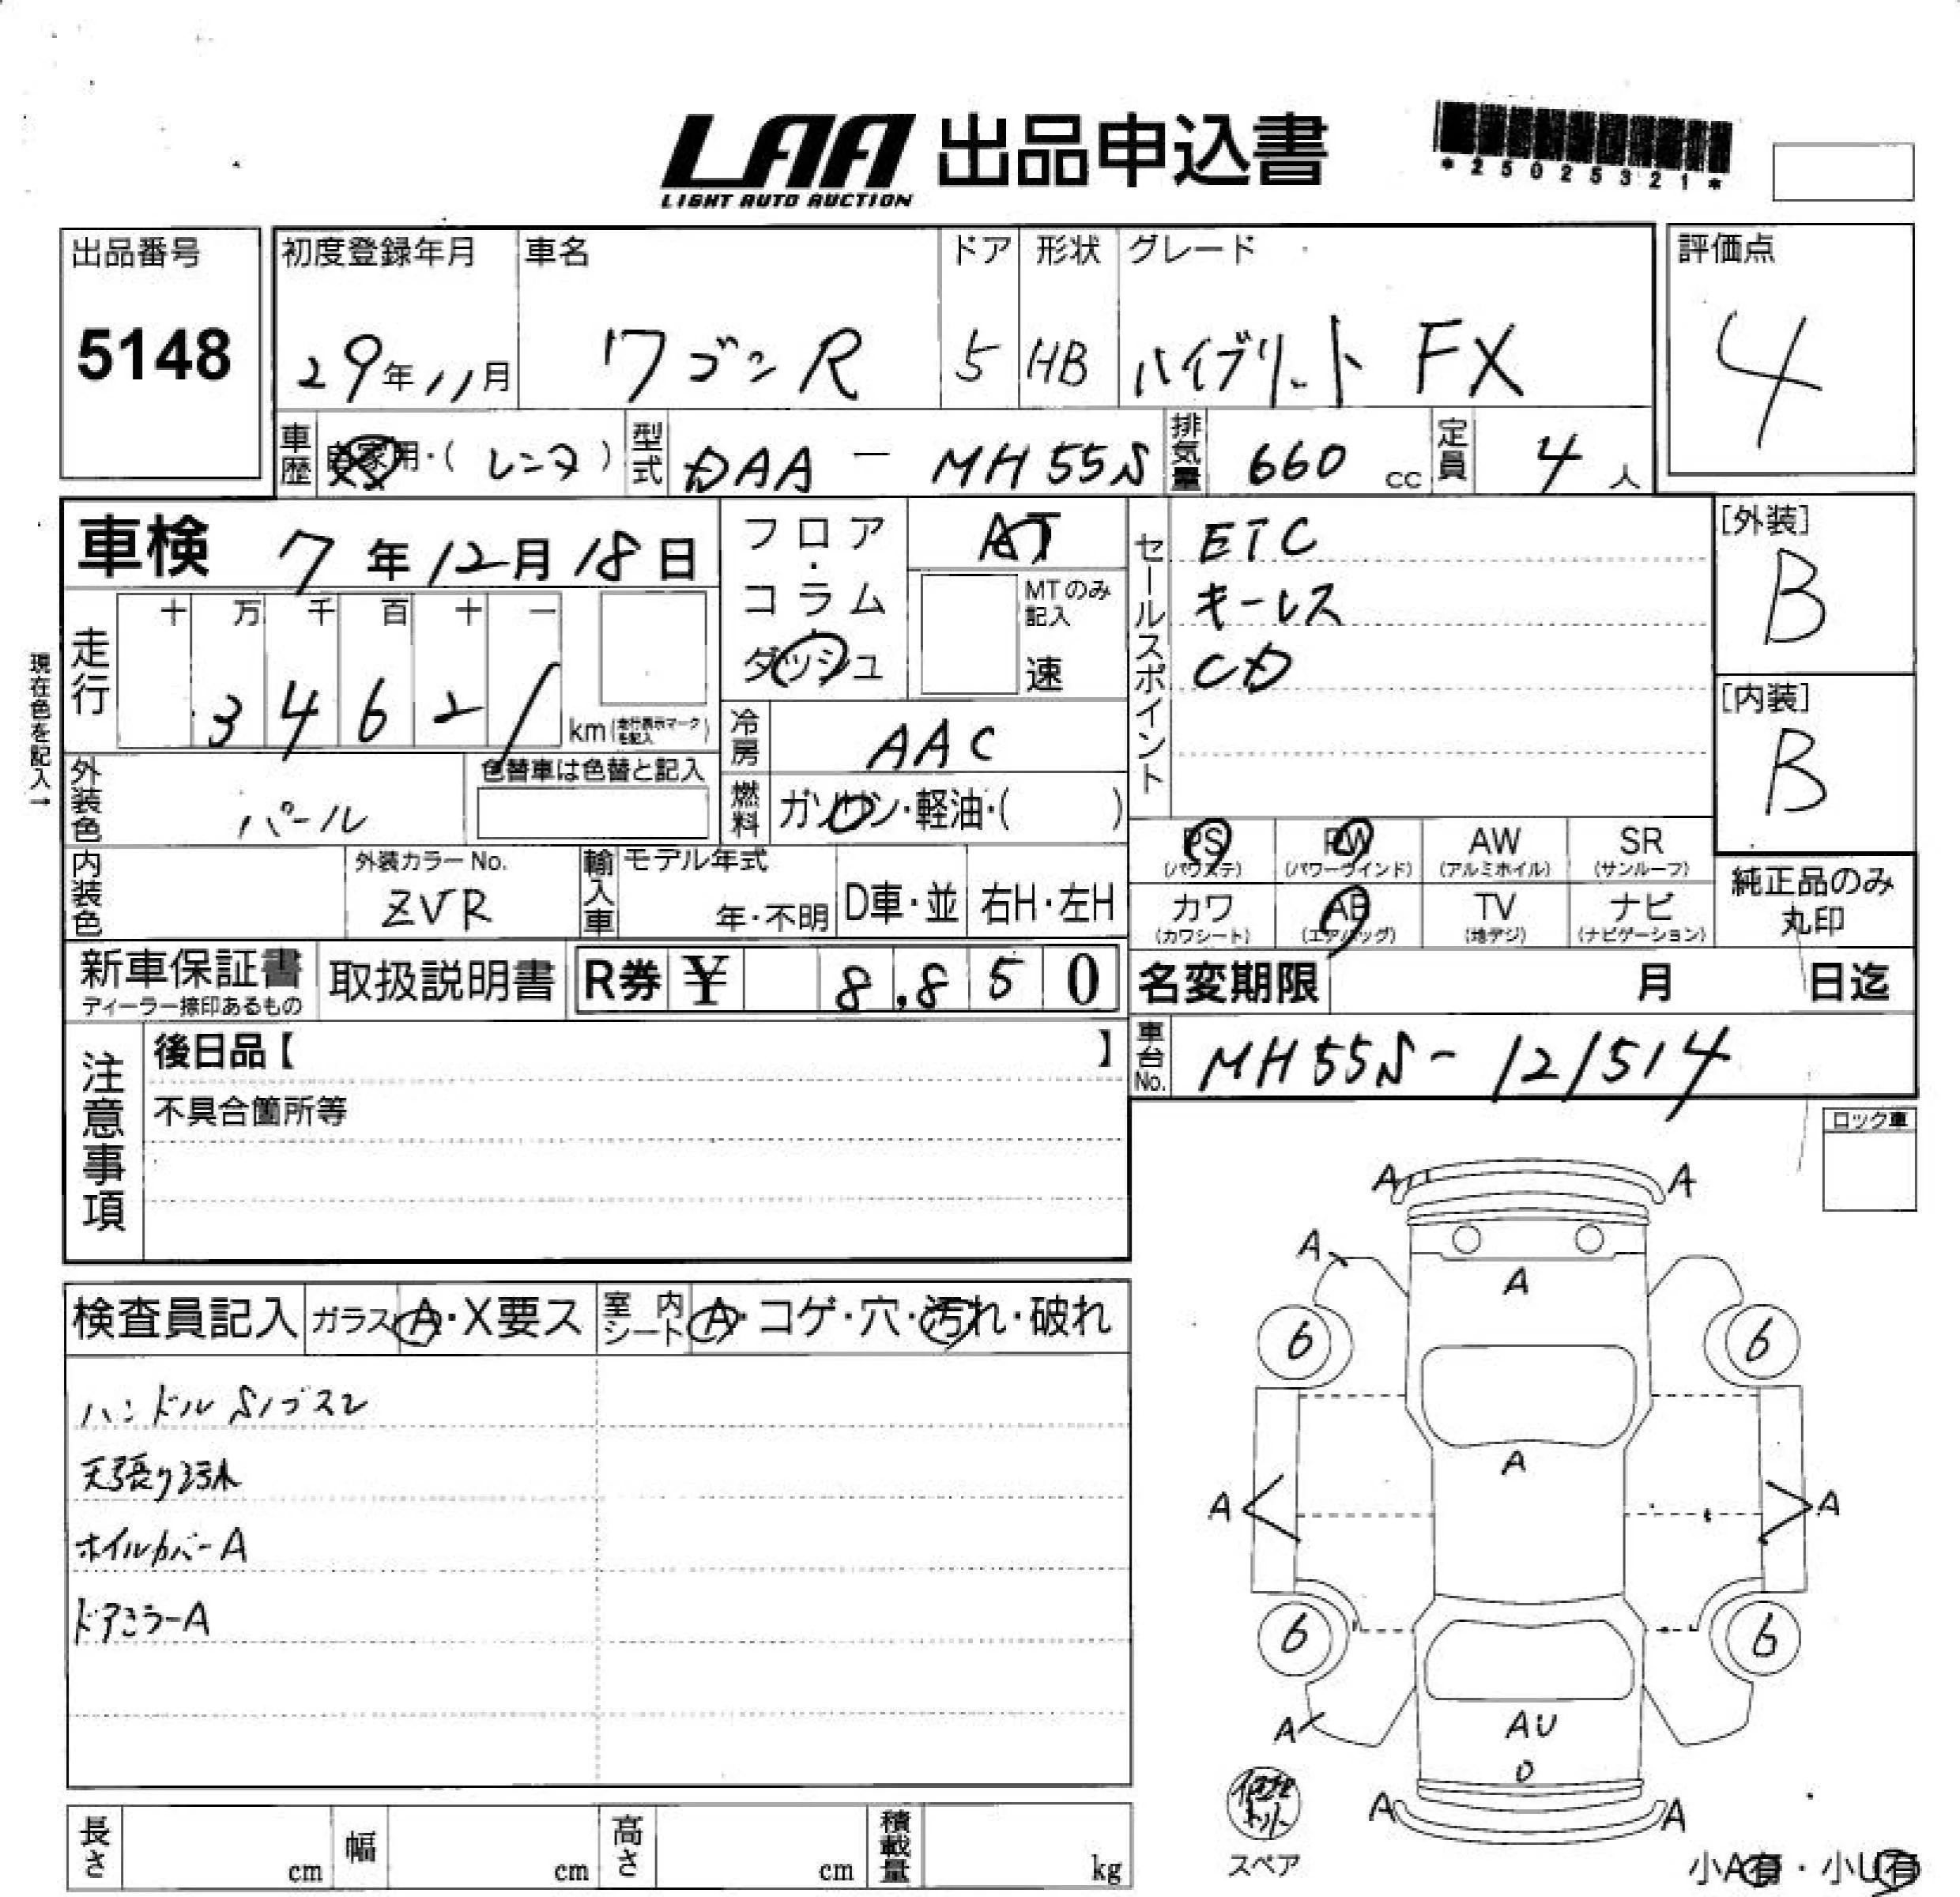 LAA 出品申込書
LIGHT AUTO AUCTION
*25025321*
出品番号
5148
初度登録年月 車名 ドア 形状 グレード
29年11月 ワゴンR 5 HB ハイブリット FX
評価点
4
車歴 自家用・(レンタ) 型式 DAA - MH55S 排気量 660 cc 定員 4 人
車検 7年12月18日
フロア・コラム・ダッシュ
AT
MTのみ記入
速
セールスポイント
ETC
キーレス
CD
[外装]
B
[内装]
B
現在色を記入→
走行 十 万 千 百 十 一
3 4 6 2 1 km(走行表示マークを記入)
冷房 AAC
外装色 パール
色替車は色替と記入
燃料 ガソリン・軽油・( )
PS (パワステ) PW (パワーウインド) AW (アルミホイル) SR (サンルーフ)
カワ (カワシート) AB (エアバッグ) TV (地デジ) ナビ (ナビゲーション)
純正品のみ丸印
内装色
外装カラーNo.
ZVR
輸入車 モデル年式
年・不明 D車・並 右H・左H
新車保証書
ディーラー捺印あるもの
取扱説明書 R券 ¥ 8,850
名変期限 月 日迄
車台No. MH55S-121514
注意事項
後日品【 】
不具合箇所等
ロック車
検査員記入 ガラス A・X要ス 室内シート A・コゲ・穴・汚れ・破れ
ハンドルS
天張り汚れ
ホイルカバーA
ドアミラーA
A A
A
A
6 6
A
A A
6 6
AU
A
A A
スペア
小A有・小U有
長さ cm 幅 cm 高さ cm 積載量 kg